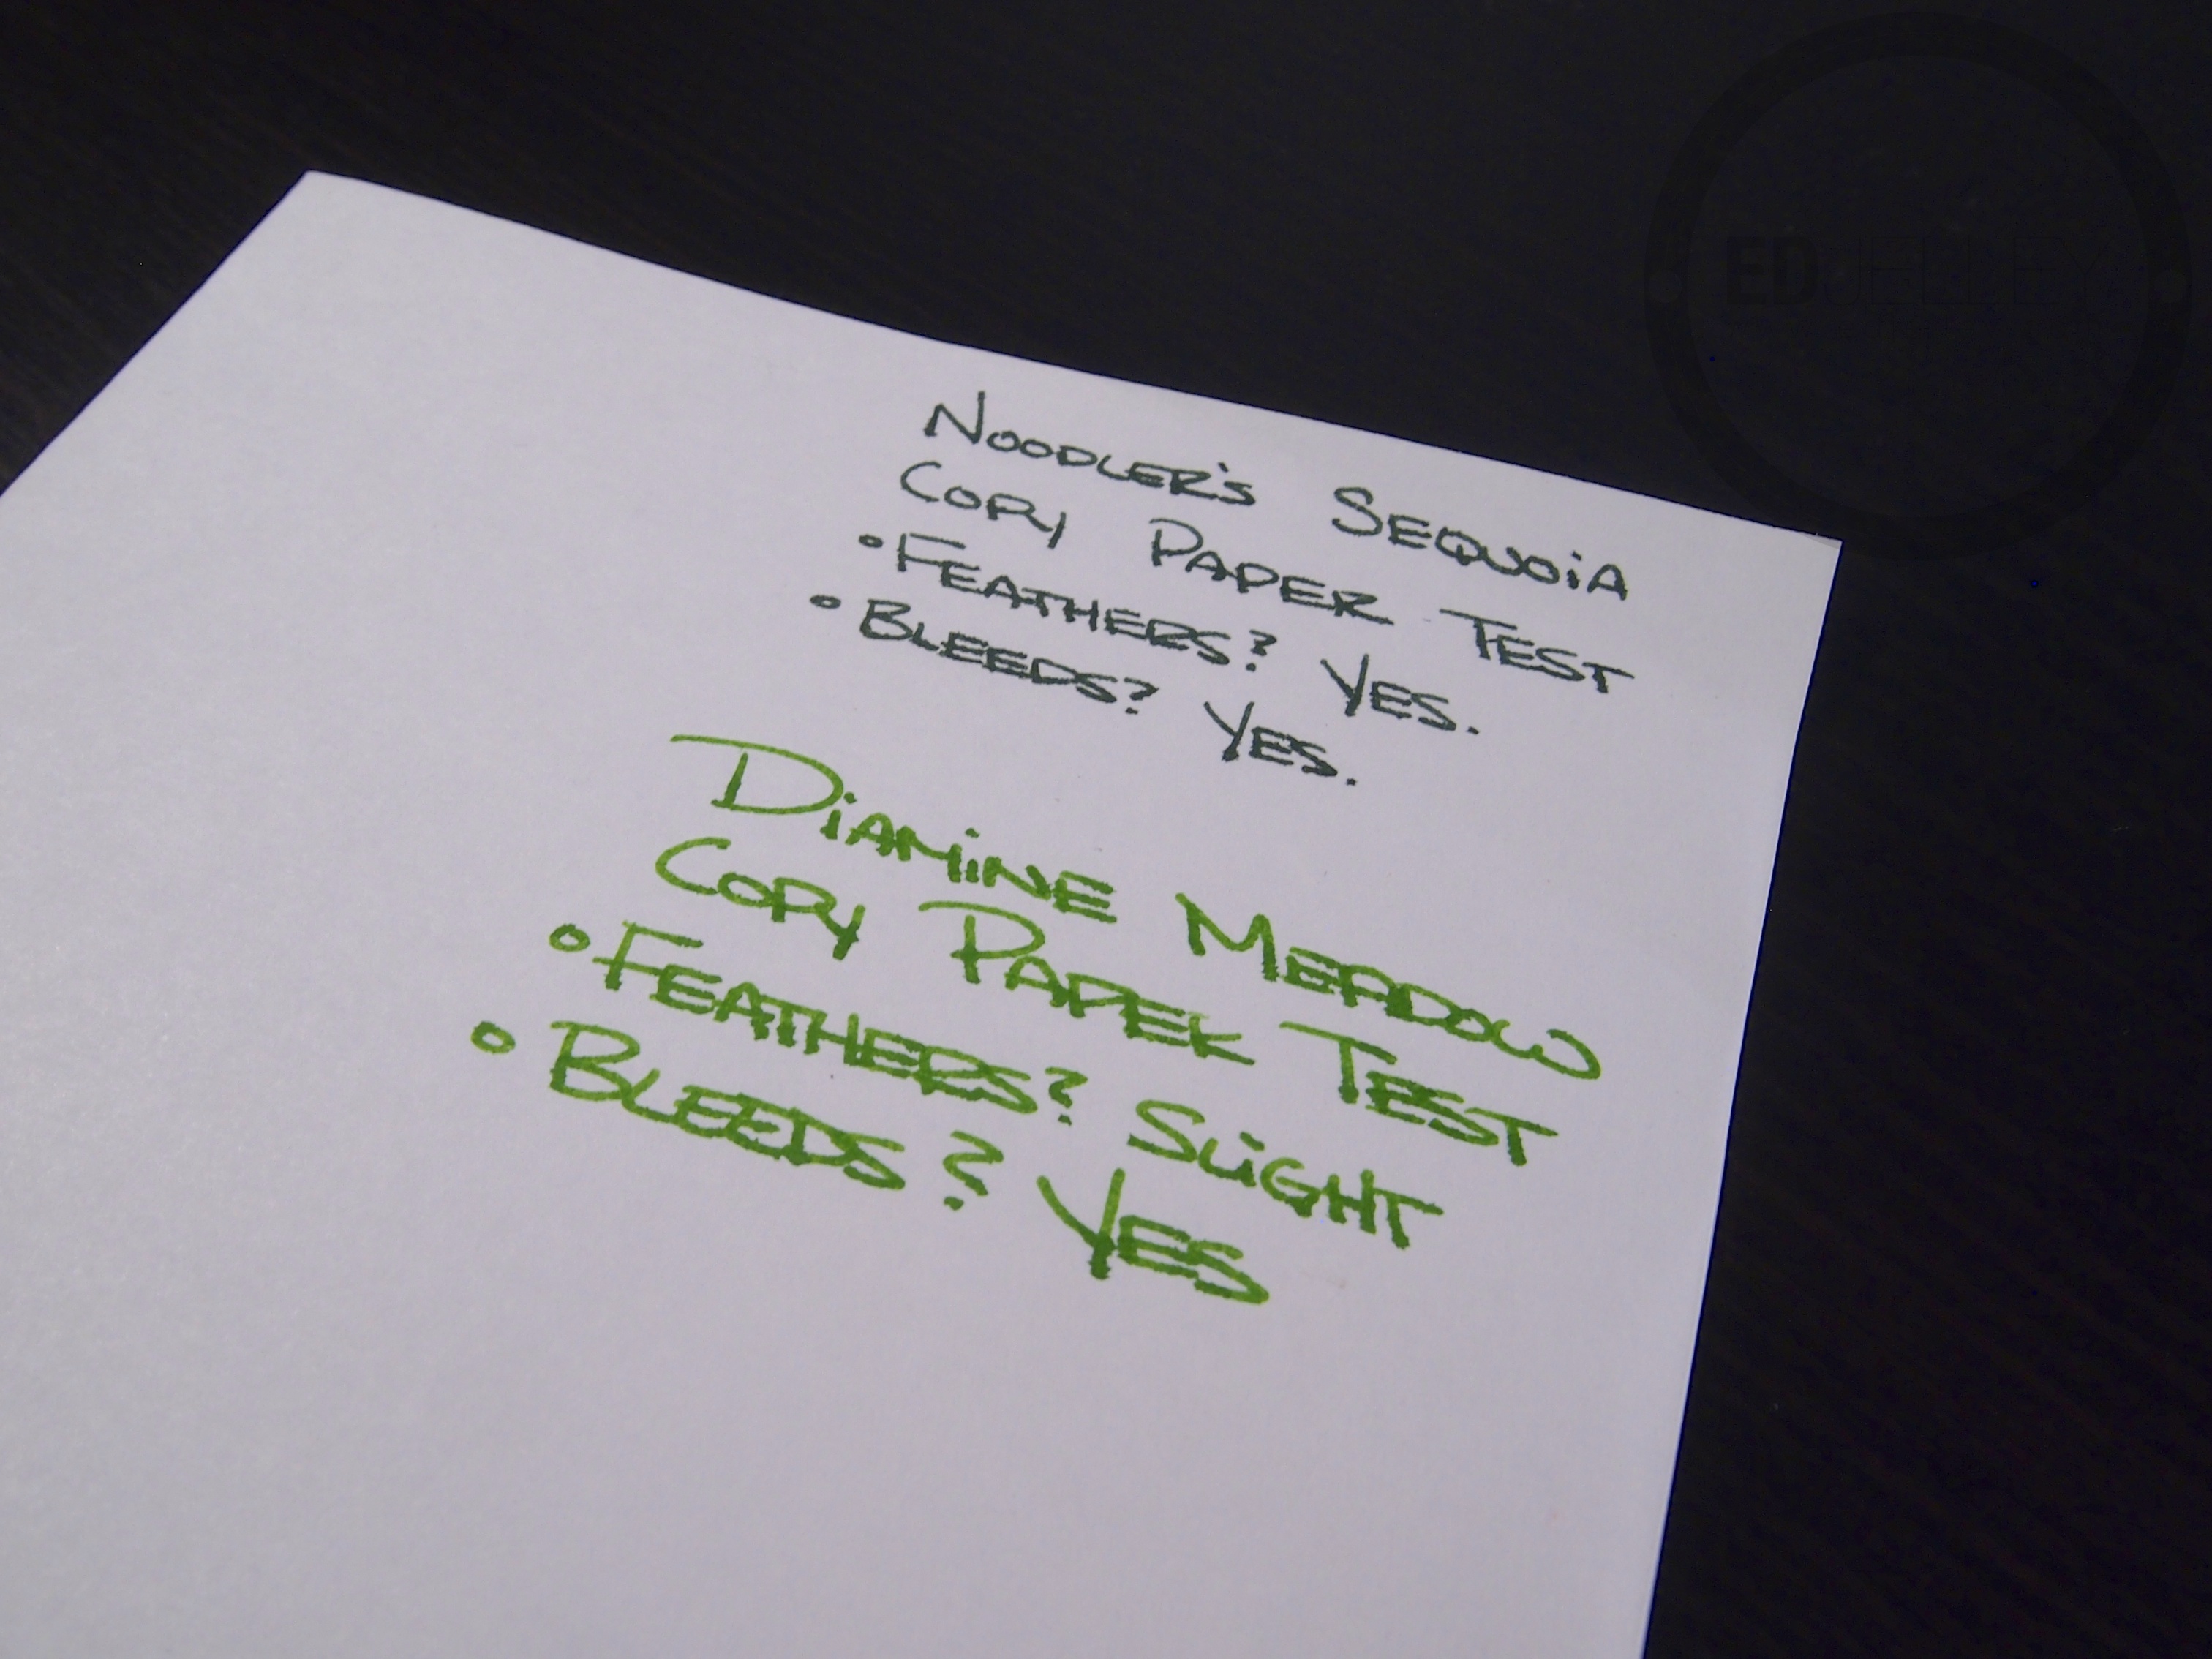 EDJELLEY
NOODLER'S SEQUOIA
COPY PAPER TEST
• FEATHERS? YES.
• BLEEDS? YES.
DIAMINE MEADOW
COPY PAPER TEST
• FEATHERS? SLIGHT
• BLEEDS? YES